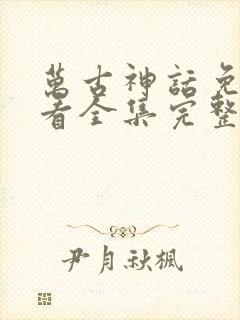 萬古神話免
看全集完整
尹月秋楓